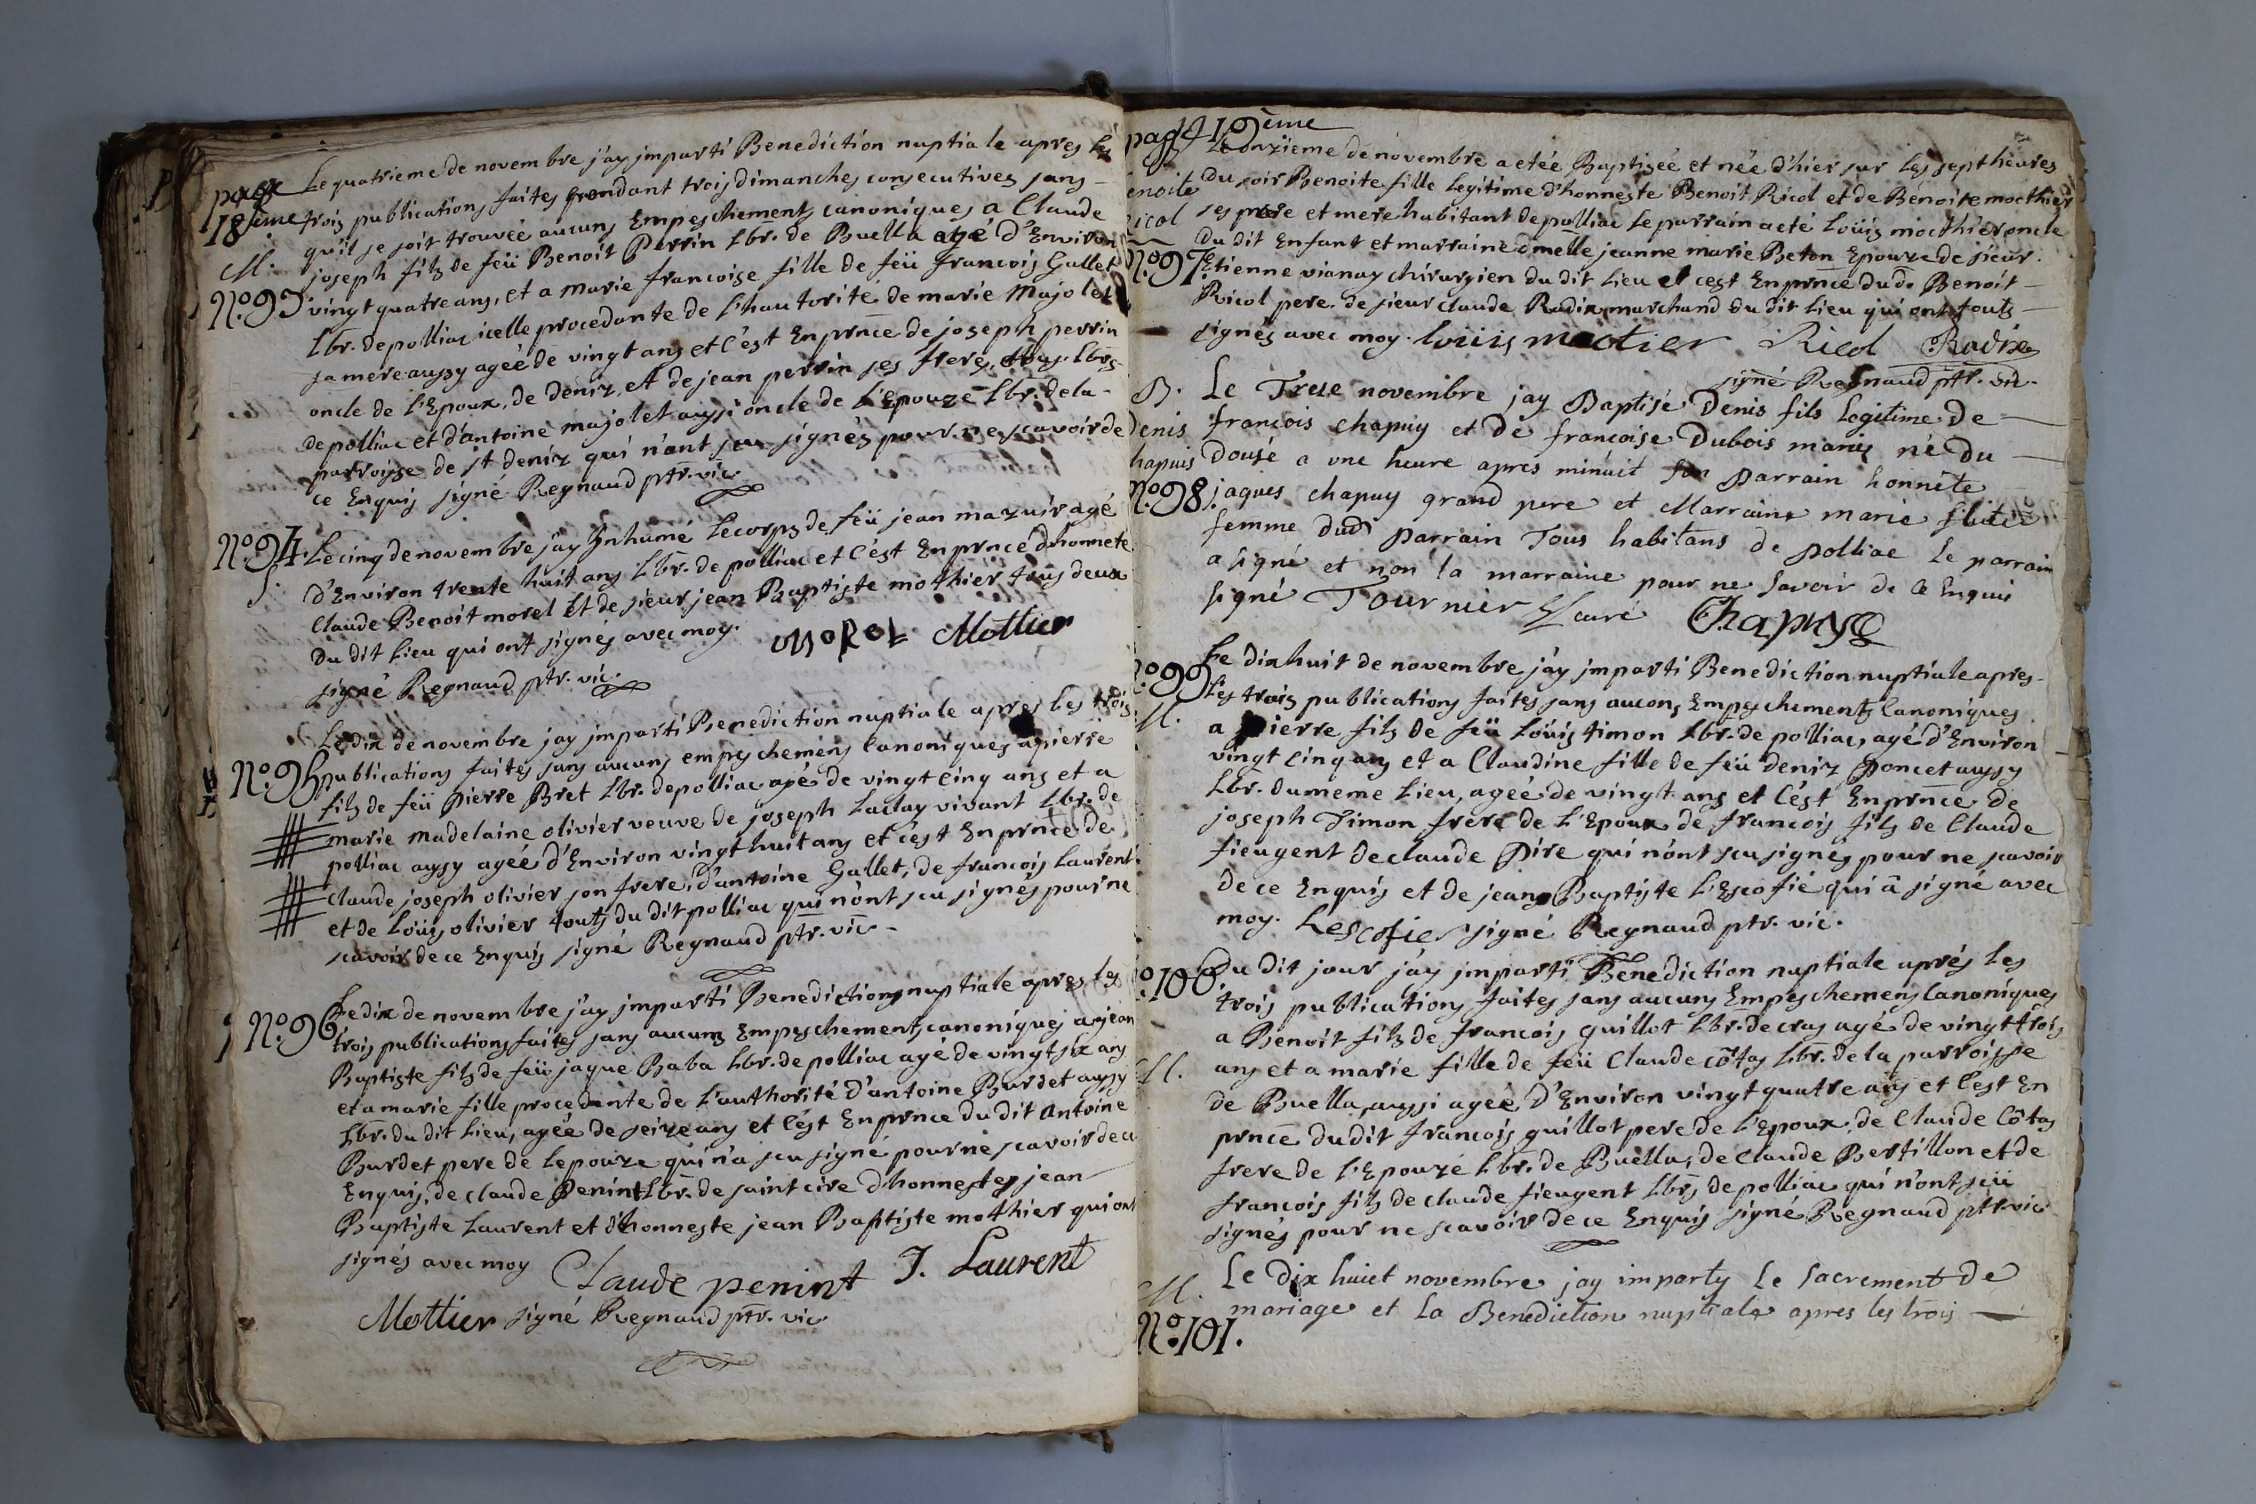 page
18ieme
M.
N.o 93
Le quatrieme de novembre j'ay imparti Benediction nuptiale apres les
trois publications faites pendant trois dimanches consecutives sans
qu'il se soit trouvée aucuns Empeschements canoniques a Claude
joseph fils de feü Benoit Perrin Lbr. de Buella agé d'Environ
vingt quatre ans, et a marie francoise fille de feü francois Gallet
Lbr. de polliac icelle procedante de l'hautorité de marie Majolet
sa mere aussy agée de vingt ans et c'est En prnce de joseph perrin
oncle de l'Epoux, de deniz, et de jean perrin ses freres, tous Lbrs
de polliac et d'antoine majolet aussi oncle de l'Epouze Lbr. de la
parroisse de st deniz qui n'ont scu signés pour ne scavoir de
ce Enquis signé Regnaud ptr. vic.
N.o 94.
S.
Le cinq de novembre j'ay Inhumé Le corps de feü jean mazuir agé
d'Environ trente huit ans Lbr. de polliac et c'est En prnce d'honnete
Claude Benoit morel et de sieur jean Baptiste mothier tous deux
du dit Lieu qui ont signés avec moy. MOREL Mottier
signé Regnaud ptr. vic.
N.o 95
Le dix de novembre jay imparti Benediction nuptiale apres les trois
publications faites sans aucuns empeschemens Canoniques a pierre
fils de feü Pierre Bret Lbr. de polliac agé de vingt cinq ans et a
marie madelaine olivier veuve de joseph Laclay vivant Lbr. de
polliac aussy agée d'Environ vingt huit ans et c'est En prnce de
Claude joseph olivier son frere, d'antoine Gallet, de francois Laurent
et de Loüis olivier touts du dit polliac qui n'ont scu signés pour ne
scavoir de ce Enquis signé Regnaud ptr. vic
N.o 96
Le dix de novembre j'ay imparti Benediction nuptiale apres les
trois publications faites sans aucuns Empeschements canoniques a jean
Baptiste fils de feü jaque Baba Lbr. de polliac agé de vingt six ans
et a marie fille procedante de l'authorité d'antoine Burdet aussy
Lbr. du dit Lieu, agée de seize ans et c'est En prnce du dit Antoine
Burdet pere de Lepouze qui n'a scu signé pour ne scavoir de ce
Enquis, de Claude Penint Lbr. de saint cire d'honnestes jean
Baptiste Laurent et d'honneste jean Baptiste mothier qui ont
signés avec moy Claude penint J. Laurent
Mottier signé Regnaud ptr. vic.
page 19ème
Benoite
Ricol
N.o 97
Le onzieme de novembre a etée Baptizeé et neé d'hier sur les sept heures
du soir Benoite fille legitime d'honneste Benoit Ricol et de Benoite mothier
ses pere et mere habitant de polliac Le parrain a eté Loüis mocthier oncle
du dit Enfant et marraine dmelle jeanne marie Beton Epouze de sieur
Etienne vianay chirurgien du dit Lieu et cest En prnce du d. Benoit
Ricol pere de sieur claude Radix marchand du dit Lieu qui ont touts
signés avec moy. loüis moctier Ricol Radix
signé Regnaud ptr. vic.
B.
Denis
Chapuis
N.o 98.
Le Treze novembre jay Baptisé Denis fils legitime de
françois chapuy et de françoise Dubois mariés né du
douse a une heure apres minuit son parrain honnête
jaques chapuy grand pere et Marraine marie
femme dud parrain Tous habitans de polliac le parrain
a signé et non la marraine pour ne savoir de ce Enquis
signé Tournier curé Chapuys
N.o 99
M.
Le dix huit de novembre j'ay imparti Benediction nuptiale apres
Les trois publications faites sans aucuns Empeschements Canoniques
a Pierre fils de feü Loüis timon Lbr. de polliac, agé d'Environ
vingt cinq ans et a Claudine fille de feü deniz Poncet aussy
Lbr. du meme Lieu, agée de vingt ans et c'est En prnce de
joseph Timon frere de l'Epoux de francois fils de Claude
fieugent de claude Pire qui n'ont scu signés pour ne scavoir
de ce Enquis et de jean Baptiste L'Escofié qui â signé avec
moy. Lescofier signé Regnaud ptr. vic.
N.o 100.
M.
Du dit jour j'ay imparti Benediction nuptiale aprés les
trois publications faites sans aucuns Empeschemens Canoniques
a Benoit fils de francois guillot Lbr. de cras agé de vingt trois
ans et a marie fille de feü Claude côtas Lbr. de la parroisse
de Buella, aussi agée d'Environ vingt quatre ans et c'est En
prnce du dit francois guillot pere de l'Epoux, de Claude Côtas
frere de l'Epouzé Lbr. de Buella, de Claude Bertillon et de
francois fils de claude fieugent Lbrs de polliac qui n'ont scü
signés pour ne scavoir de ce Enquis signé Regnaud ptr. vic
M.
N.o 101.
Le Dix huict novembre jay imparty Le sacrement de
mariage et La Benediction nuptiale apres les trois